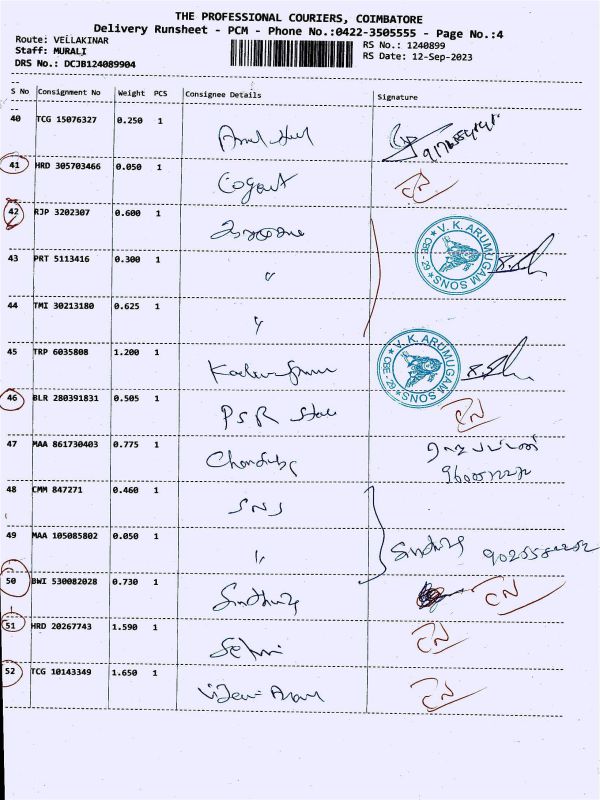 THE PROFESSIONAL COURIERS, COIMBATORE
Delivery Runsheet - PCM - Phone No.:0422-3505555 - Page No.:4
Route: VELLAKINAR
RS No.: 1240899
Staff: MURALI
RS Date: 12-Sep-2023
DRS No.: DCJB124089904
S No Consignment No Weight PCS Consignee Details Signature
40 TCG 15076327 0.250 1
41 HRD 305703466 0.050 1 CN
42 RJP 3202307 0.600 1
V. K. ARUMUGAM SONS
CBE - 29
43 PRT 5113416 0.300 1 "
44 TMI 30213180 0.625 1 "
V. K. ARUMUGAM SONS
CBE - 29
45 TRP 6035808 1.200 1
46 BLR 280391831 0.505 1 PSR CN
47 MAA 861730403 0.775 1
48 CMM 847271 0.460 1 SNS
49 MAA 105085802 0.050 1 "
50 BWI 530082028 0.730 1 CN
51 HRD 20267743 1.590 1 CN
52 TCG 10143349 1.650 1 CN